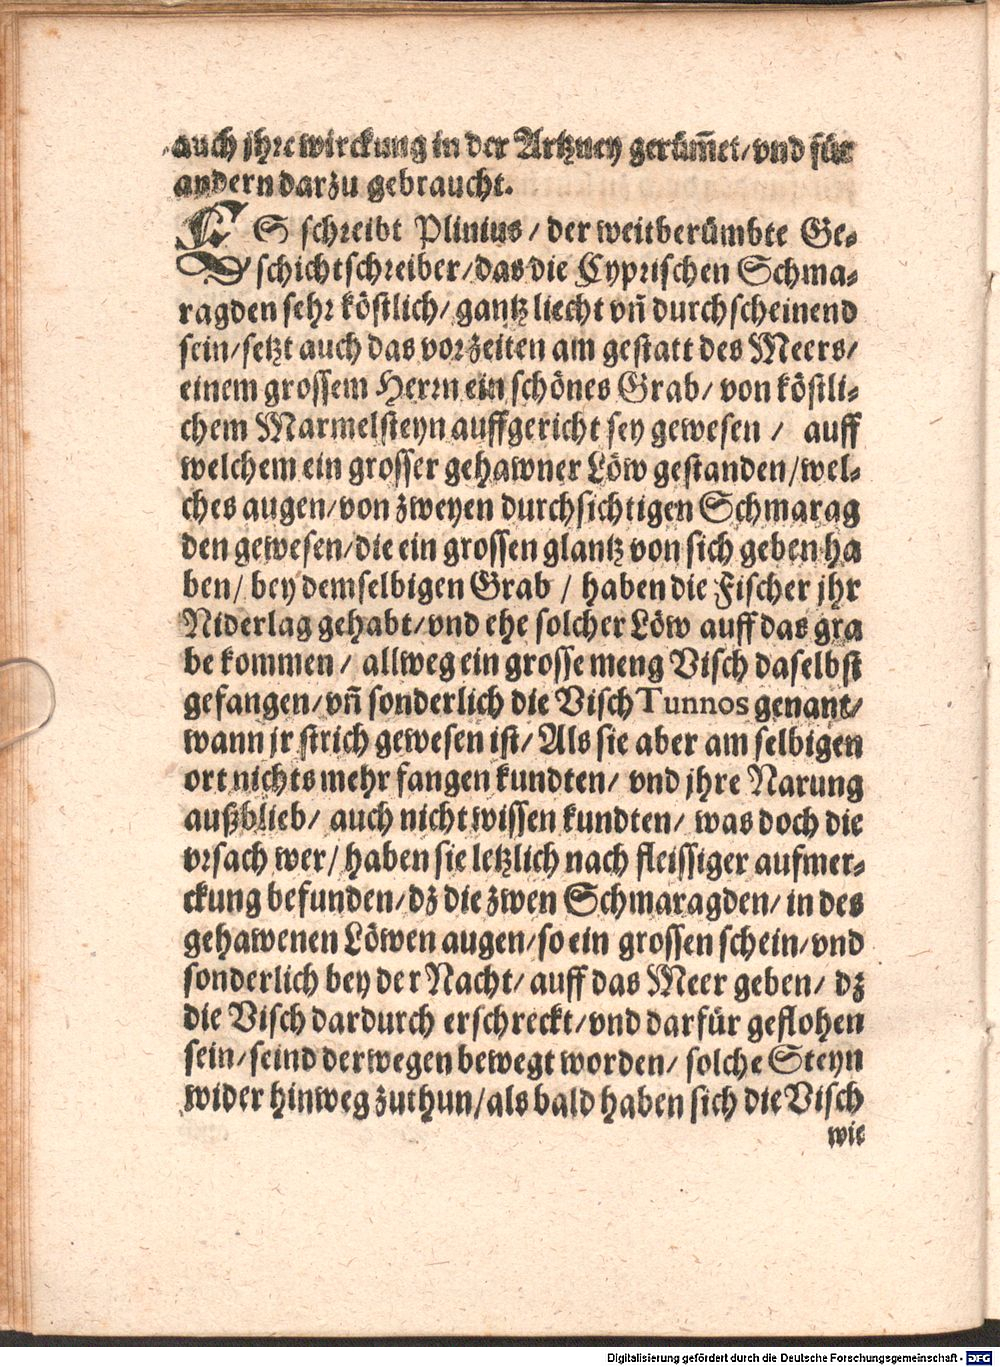 auch jhre wirckung in der Artzney gerüm̃et/ vnd für
andern darzu gebraucht.
ES schreibt Plinius / der weitberümbte Ge-
schichtschreiber/ das die Cyprischen Schma-
ragden sehr köstlich/ gantz liecht vñ durchscheinend
sein/ setzt auch das vorzeiten am gestatt des Meers/
einem grossem Herrn ein schönes Grab/ von köstli-
chem Marmelsteyn auffgericht sey gewesen / auff
welchem ein grosser gehawner Löw gestanden/ wel-
ches augen/ von zweyen durchsichtigen Schmarag
den gewesen/ die ein grossen glantz von sich geben ha
ben/ bey demselbigen Grab / haben die Fischer jhr
Niderlag gehabt/ vnd ehe solcher Löw auff das gra
be kommen / allweg ein grosse meng Visch daselbst
gefangen/ vñ sonderlich die Visch Tunnos genant/
wann jr strich gewesen ist/ Als sie aber am selbigen
ort nichts mehr fangen kundten/ vnd jhre Narung
außblieb/ auch nicht wissen kundten/ was doch die
vrsach wer/ haben sie letzlich nach fleissiger aufmer-
ckung befunden/ dz die zwen Schmaragden/ in des
gehawenen Löwen augen/ so ein grossen schein/ vnd
sonderlich bey der Nacht/ auff das Meer geben/ dz
die Visch dardurch erschreckt/ vnd darfür geflohen
sein/ seind derwegen bewegt worden/ solche Steyn
wider hinweg zuthun/ als bald haben sich die Visch
wie
Digitalisierung gefördert durch die Deutsche Forschungsgemeinschaft - DFG